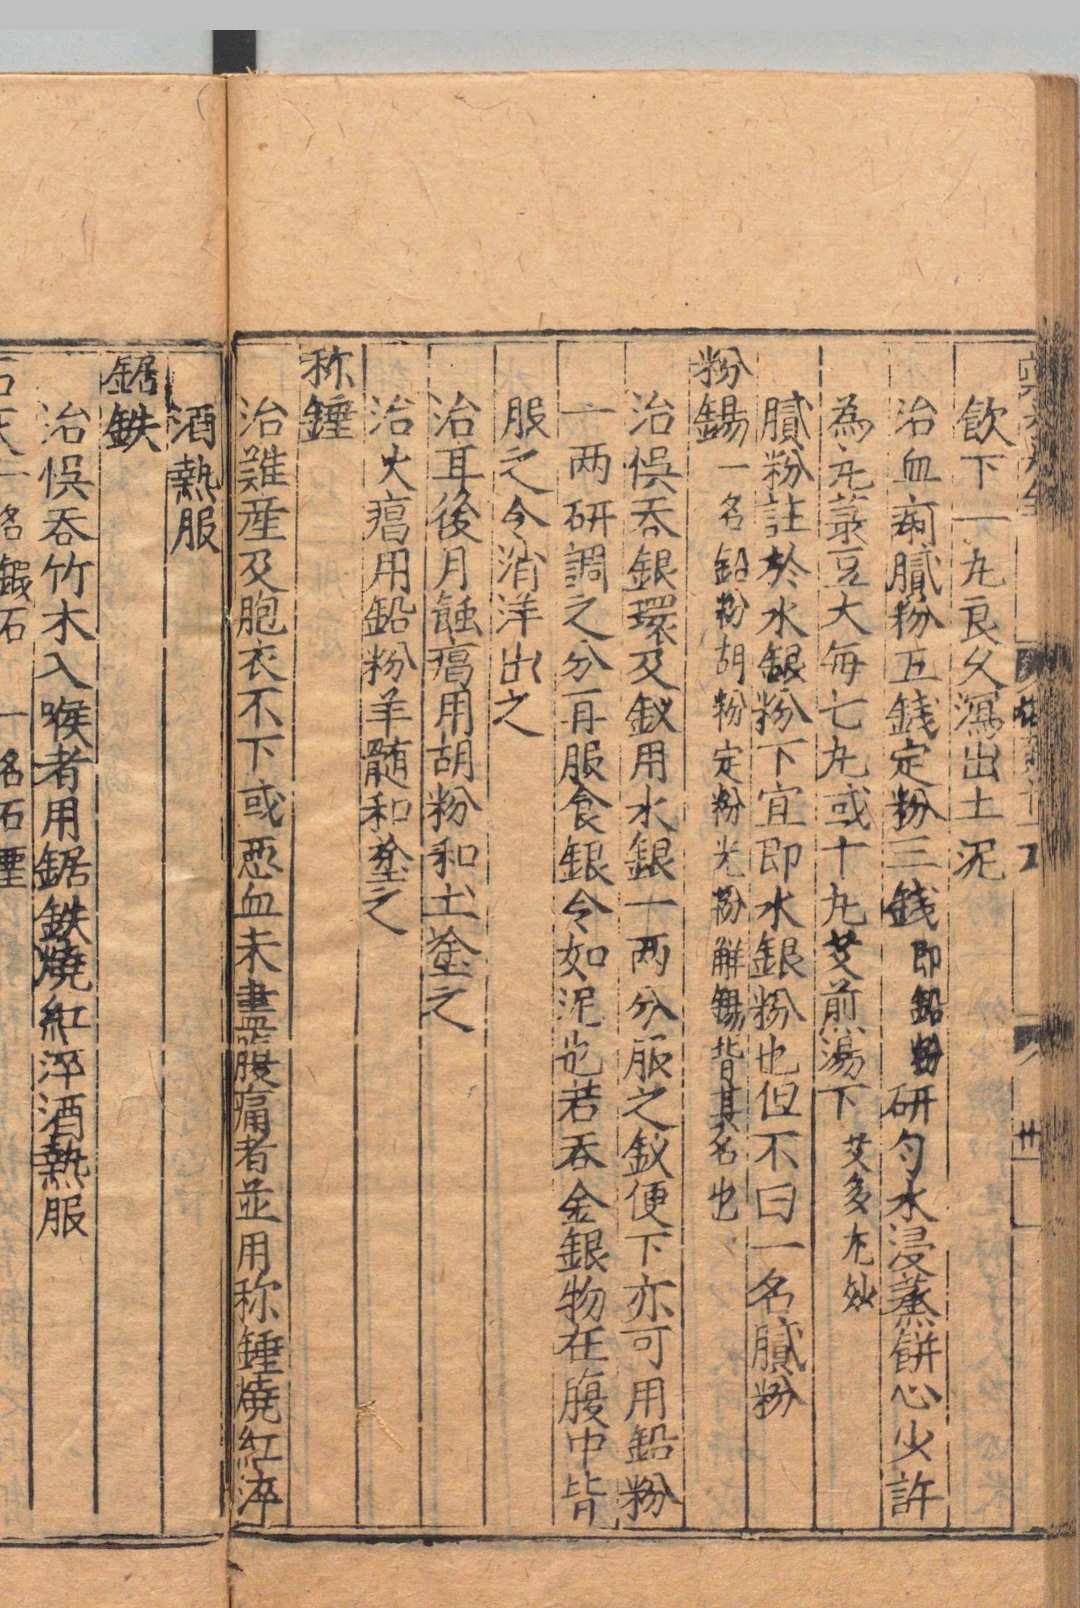 飲下一九良久瀉出土泥
治血痢膩粉五錢定粉三錢即鉛粉研勻水浸蒸餅心少許
為元菉豆大每七九或十九艾煎湯下艾多尤妙
膩粉註於水銀粉下宜即水銀粉也但不曰一名膩粉
粉錫一名鉛粉胡粉定粉光粉解錫皆其名也
治悞吞銀環及釵用水銀一兩分服之釵便下亦可用鉛粉
一兩研調之分再服食銀令如泥也若吞金銀物在腹中皆
服之令消洋出之
治耳後月蝕瘡用胡粉和土塗之
治火瘡用鉛粉羊髓和塗之
称錘
治難産及胞衣不下或惡血未盡腹痛者並用称錘燒紅淬
酒熱服
鋸鉄
治悞吞竹木入喉者用鋸鉄燒紅淬酒熱服
石灰一名鍜石 一名石堊